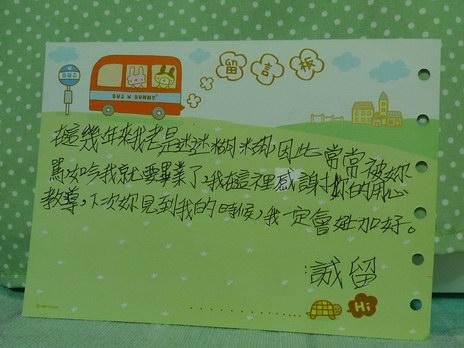 留言板
這幾年來我老是迷迷糊糊,因此常常被妳
罵如今我就要畢業了,我在這裡感謝妳的用心
教導,下次妳見到我的時候,我一定會加好。
:誠留
Hi